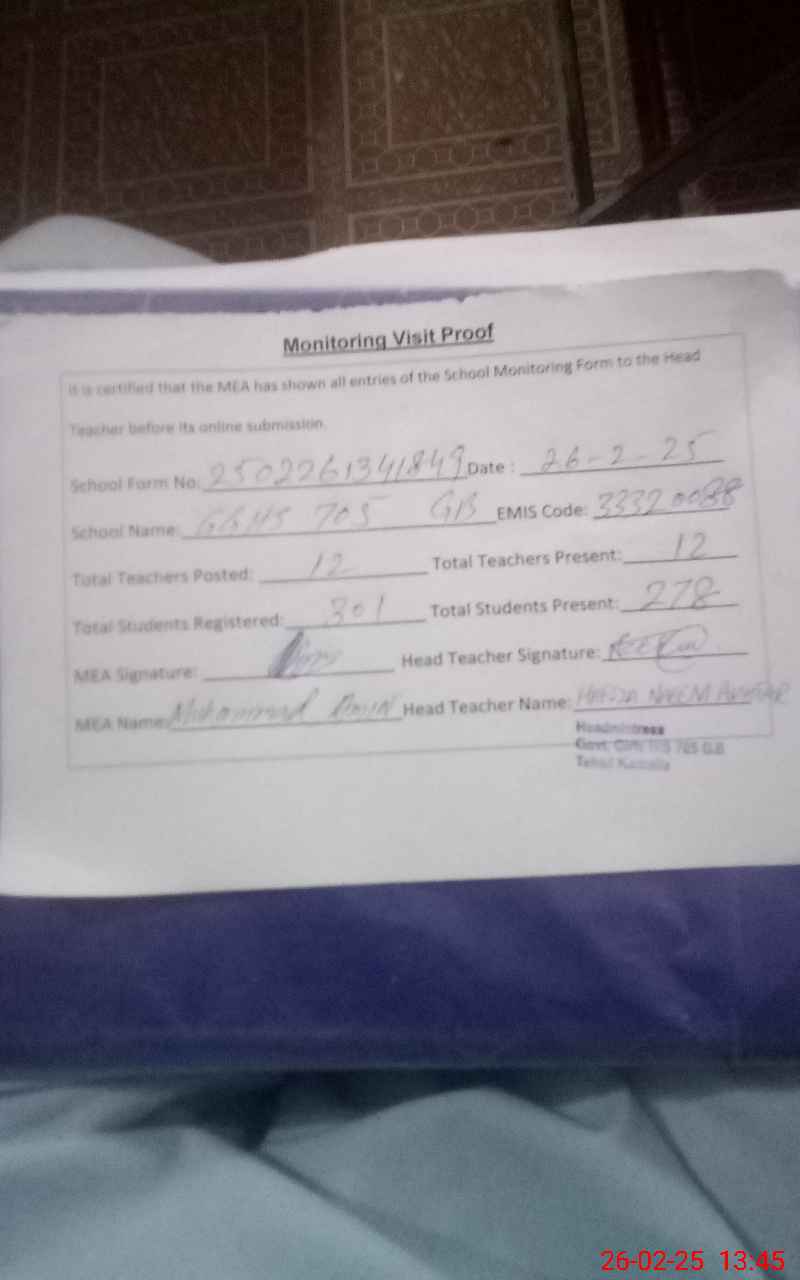 Monitoring Visit Proof
It is certified that the MEA has shown all entries of the School Monitoring Form to the Head
Teacher before its online submission.
School Form No: 2502261341849 Date : 26-2-25
School Name: GGHS 705 GB EMIS Code: 33320088
Total Teachers Posted: 12 Total Teachers Present: 12
Total Students Registered: 301 Total Students Present: 278
MEA Signature: Head Teacher Signature:
MEA Name: Muhammad Amin Head Teacher Name:
Headmistress
Govt. Girls H/S 705 G.B
Tehsil Kamalia
26-02-25 13:45